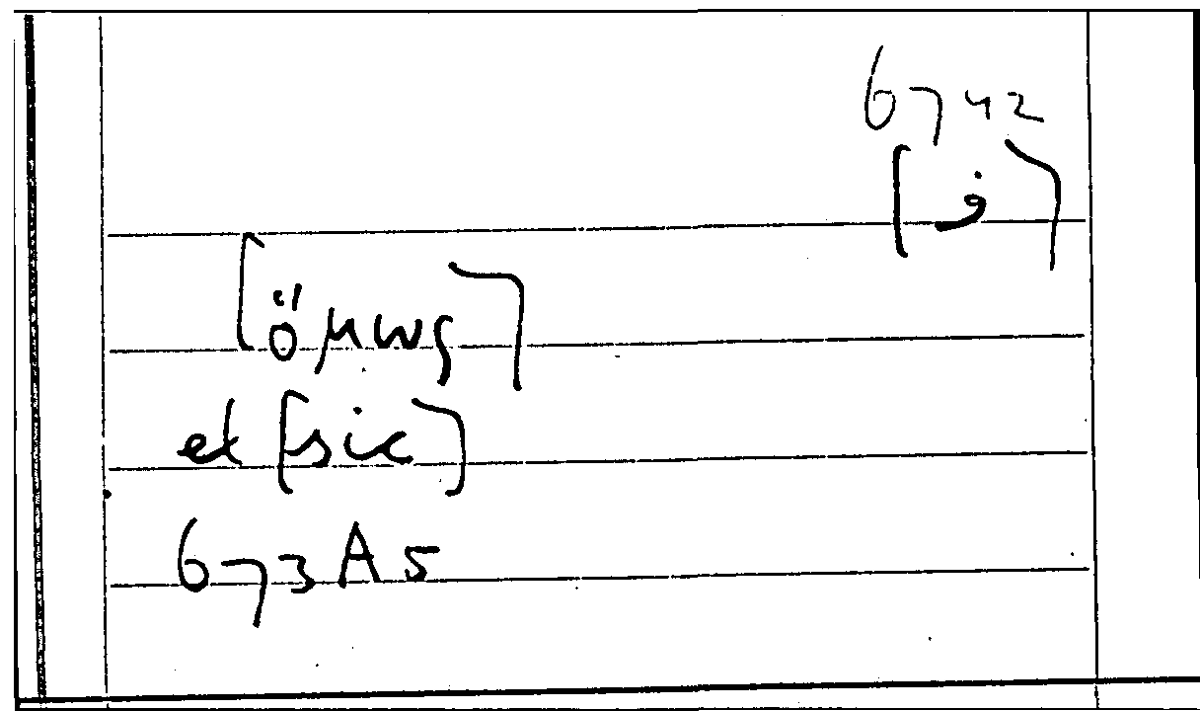 6742
[ف]
[ὅμως]
el [sic]
673A5